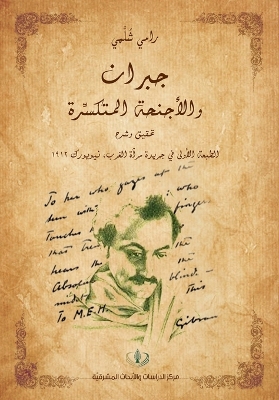 رامي شلّمي
جبران
والأجنحة المتكسّرة
تحقيق وشرح
الطبعة الأولى في جريدة مرآة الغرب، نيويورك ١٩١٢
To her who gazes at the
sun with finger
Touches
that tre
hears the
Absol the blind
midst this
To M.E.H. Gibran
مركز الدراسات والأبحاث المشرقية